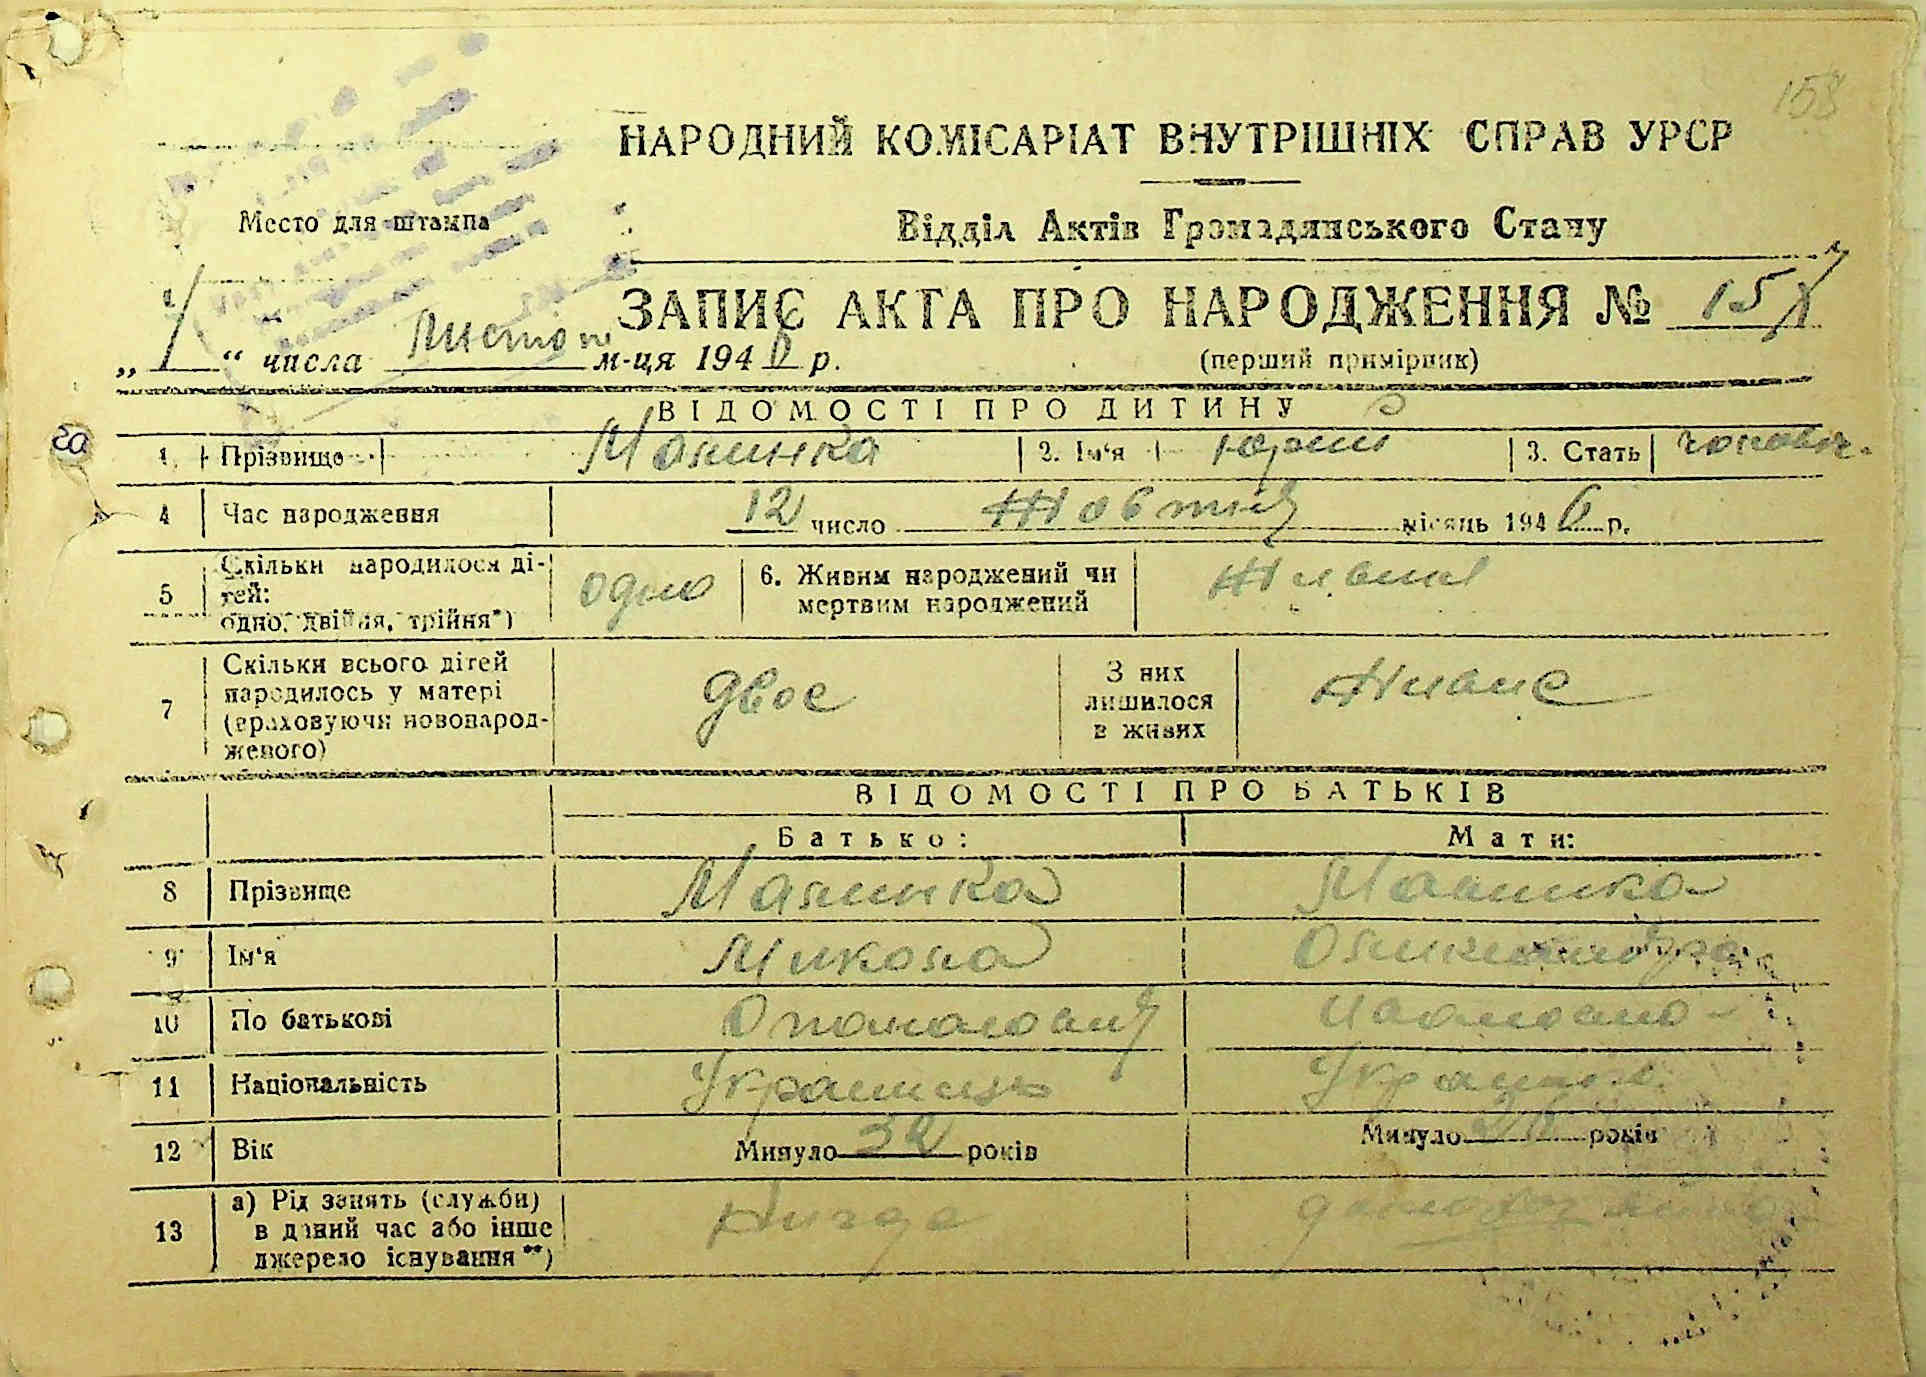 158
НАРОДНИЙ КОМІСАРІАТ ВНУТРІШНІХ СПРАВ УРСР
Место для штампа
Відділ Актів Громадянського Стану
ЗАПИС АКТА ПРО НАРОДЖЕННЯ №
„ 1 “ числа Листоп м-ця 1946 р.
(перший примірник)
ВІДОМОСТІ ПРО ДИТИНУ
1. Прізвище Малинка 2. Ім'я Юрий 3. Стать чоловіч.
4 Час народження 12 число Жовтня місяць 1946 р.
5 Скільки народилося ді-
тей:
одно, двійня, трійня*) одно 6. Живим народжений чи
мертвим народжений Живий
7 Скільки всього дітей
народилось у матері
(враховуючи новонарод-
женого) двое З них
лишилося
в живих
ВІДОМОСТІ ПРО БАТЬКІВ
Батько: Мати:
8 Прізвище Малинка Малинка
9 Ім'я Микола
10 По батькові
11 Національність Українець Українка
12 Вік Минуло 32 років Минуло років
13 а) Рід занять (служби)
в даний час або інше
джерело існування**)